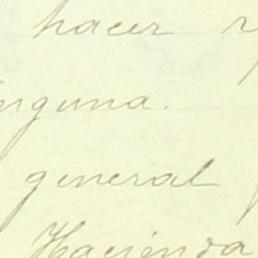 hacer
inguna.
general
Hacienda